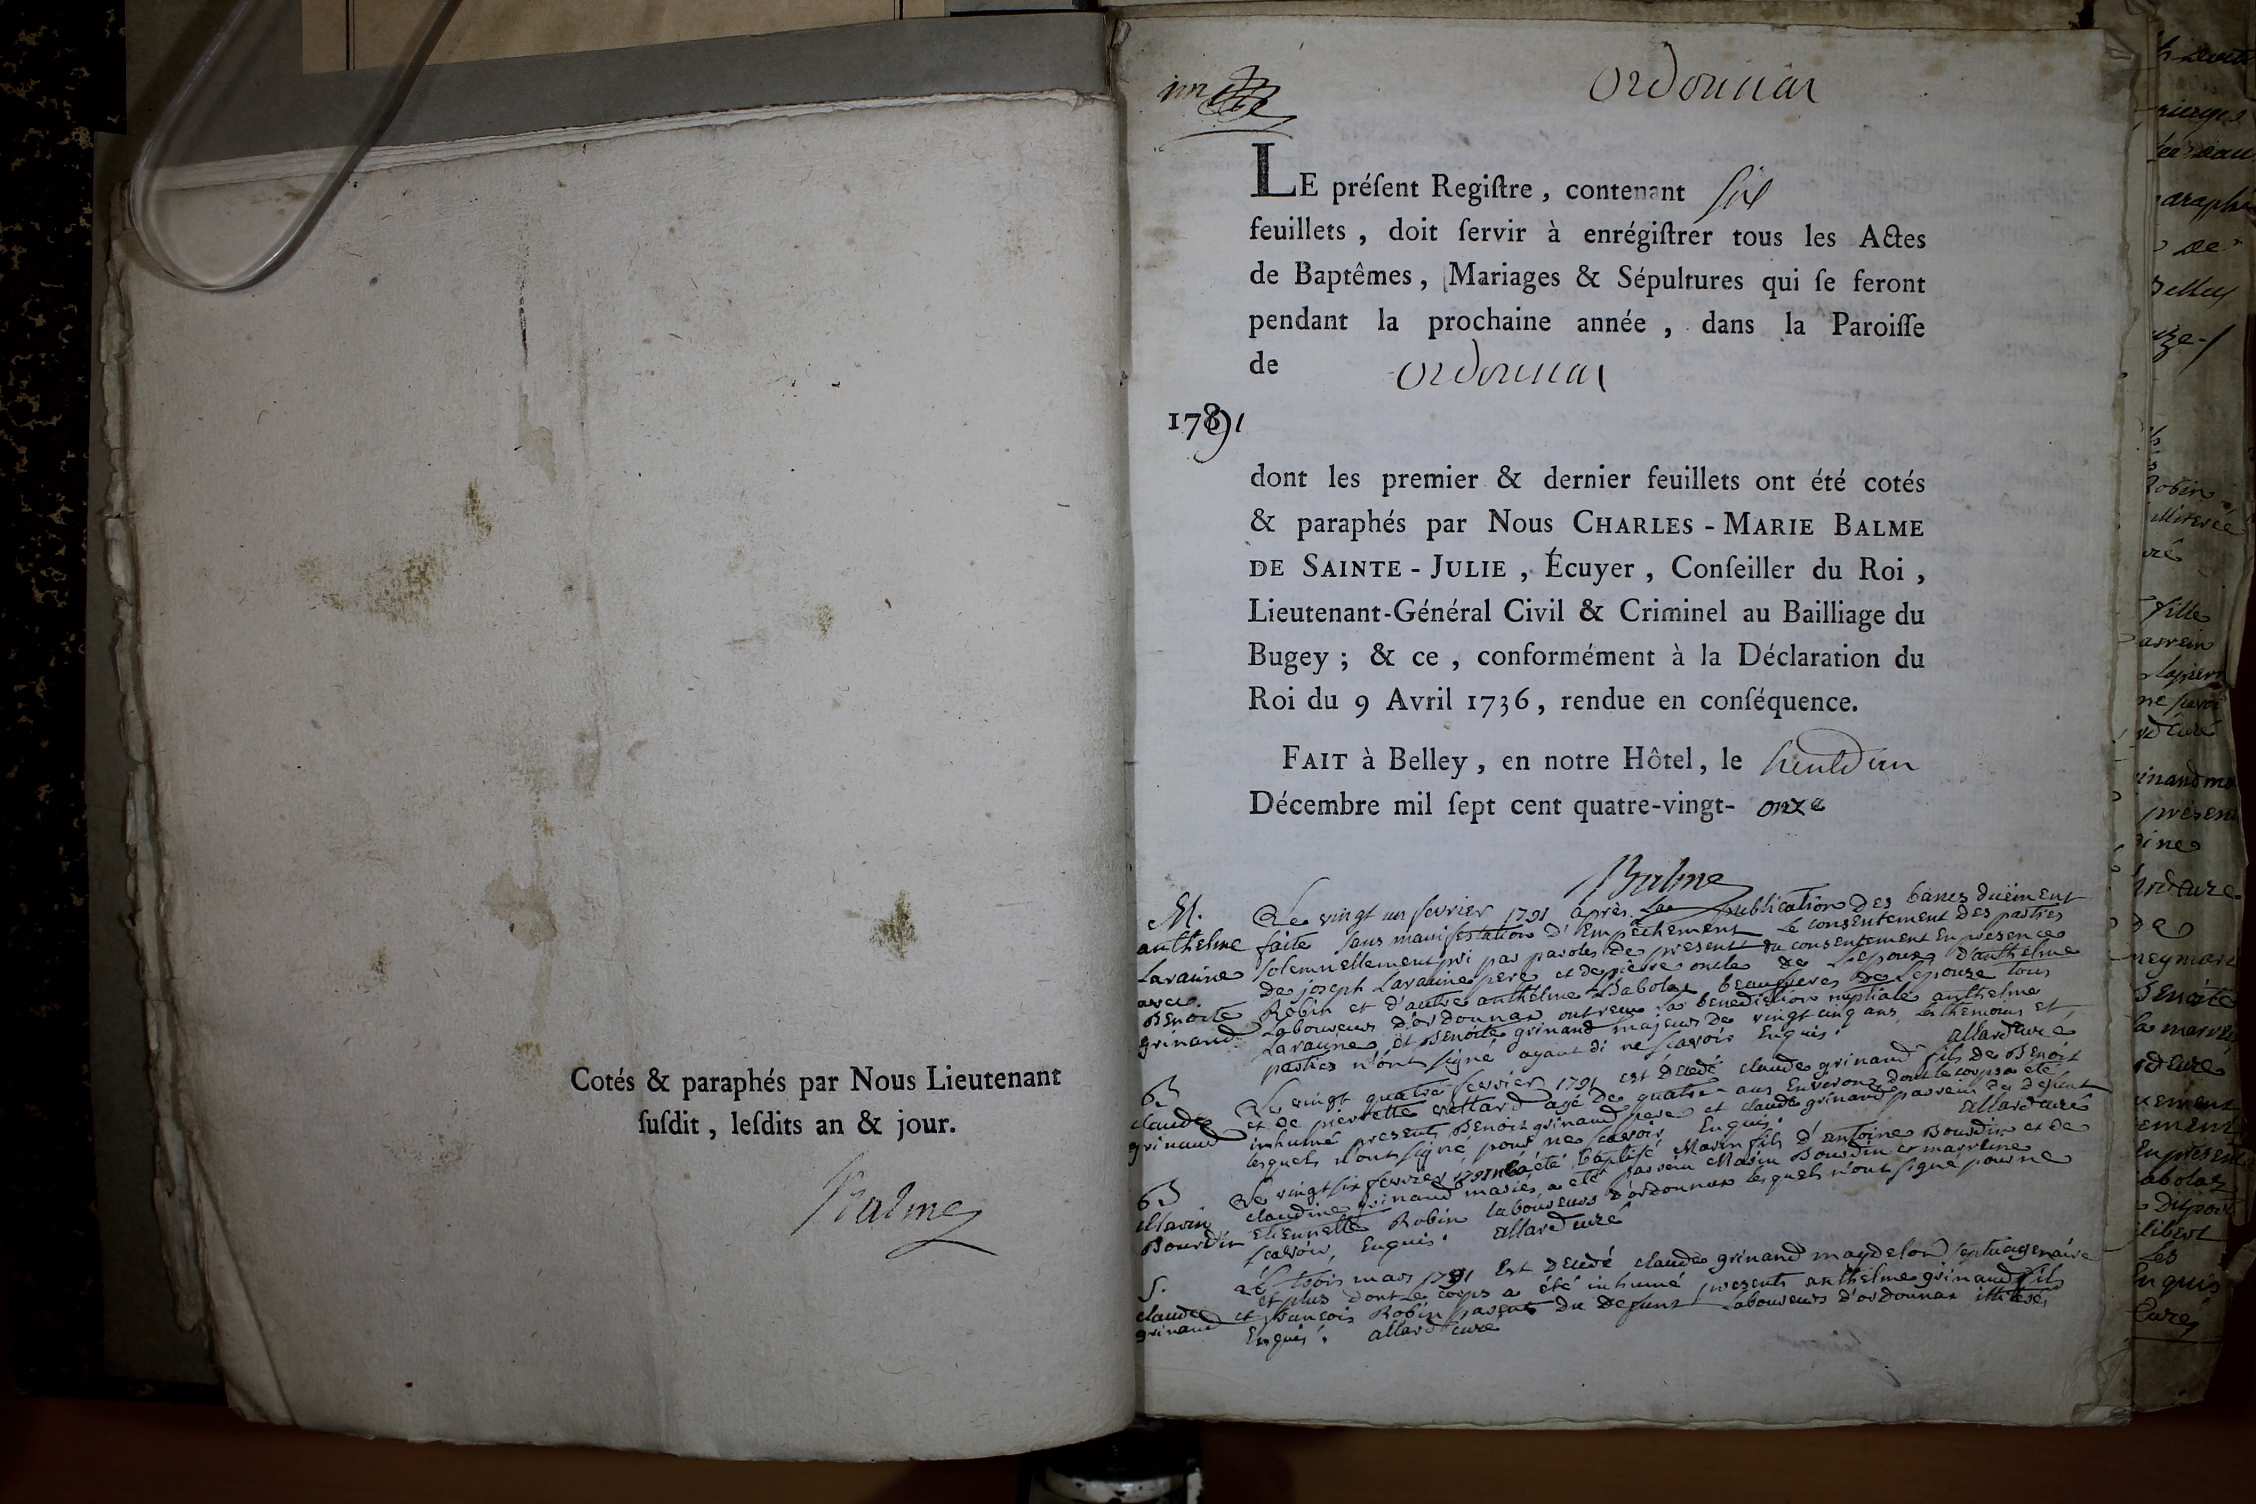 Cotés & paraphés par Nous Lieutenant
ſuſdit, leſdits an & jour.
Balme
un
Ordonnax
LE préſent Regiſtre, contenant ſix
feuillets, doit ſervir à enrégiſtrer tous les Actes
de Baptêmes, Mariages & Sépultures qui ſe feront
pendant la prochaine année, dans la Paroiſſe
de Ordonnax
1791
dont les premier & dernier feuillets ont été cotés
& paraphés par Nous CHARLES-MARIE BALME
DE SAINTE-JULIE, Écuyer, Conſeiller du Roi,
Lieutenant-Général Civil & Criminel au Bailliage du
Bugey; & ce, conformément à la Déclaration du
Roi du 9 Avril 1736, rendue en conſéquence.
FAIT à Belley, en notre Hôtel, le
Décembre mil ſept cent quatre-vingt- onze
Balme
M.
anthelme
Laraine
avec
Benoite
grinand
Le vingt un fevrier 1791 après la publication des bancs duëment
faite sans manifestation d'Empêchement le consentement des parties
solemnellement pri par paroles de present du consentement En presence
de joseph Laraine pere et de pierre oncle de L'epoux d'anthelme
Robin et d'autre anthelme Babolat beaufrere de Lepouse tous
Laboureurs d'ordonnax ont reçu la benediction nuptiale anthelme
Laraine et Benoite grinand majeurs de vingt cinq ans, les themoins et
parties n'ont signé ayant di ne scavoir Enquis. allard curé
claude
grinand
Le vingt quatre fevrier 1791 est decedé claude grinand fils de Benoit
et de pierrette vettard agé de quatre ans Environ dont le corps a été
inhumé presents Benoit grinand pere et claude grinand parrein du defunt
lesquels n'ont signé pour ne scavoir Enquis. allard curé
B
Marin
Bourdin
Le vingt six fevrier 1791 a été baptisé Marin fils d'antoine Bourdin et de
claudine grinand mariés a eté parrein Marin Bourdin et marreine
Etiennette Robin laboureurs d'ordonnax lesquels n'ont signé pour ne
scavoir, Enquis. allard curé
S.
claude
grinand
Le trois mars 1791 Est decedé claude grinand magdelon septuagenaire
et plus dont le corps a été inhumé presents anthelme grinand fils
et françois Robin parent du defunt Laboureurs d'ordonnax illiterés
Enquis. allard curé